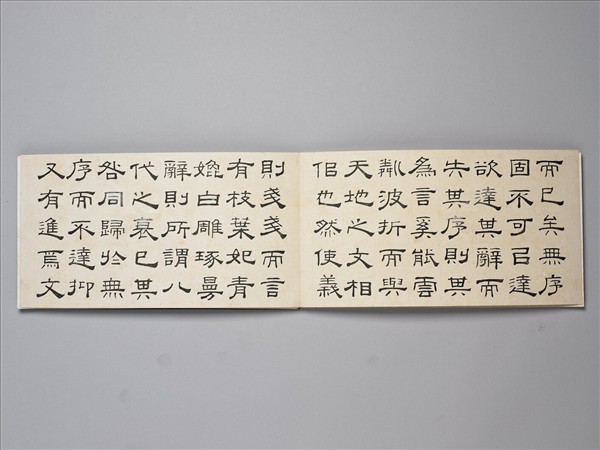 而已矣無序
固不可㠯達
欲達其辭而
失其序則其
為言奚能雲
粼波折而與
天地之文相
佀也然使義
則戔戔而言
有枝葉妃青
媲白雕琢曼
辭則所謂八
代之衰已其
咎同歸於無
序而不達抑
又有進焉文